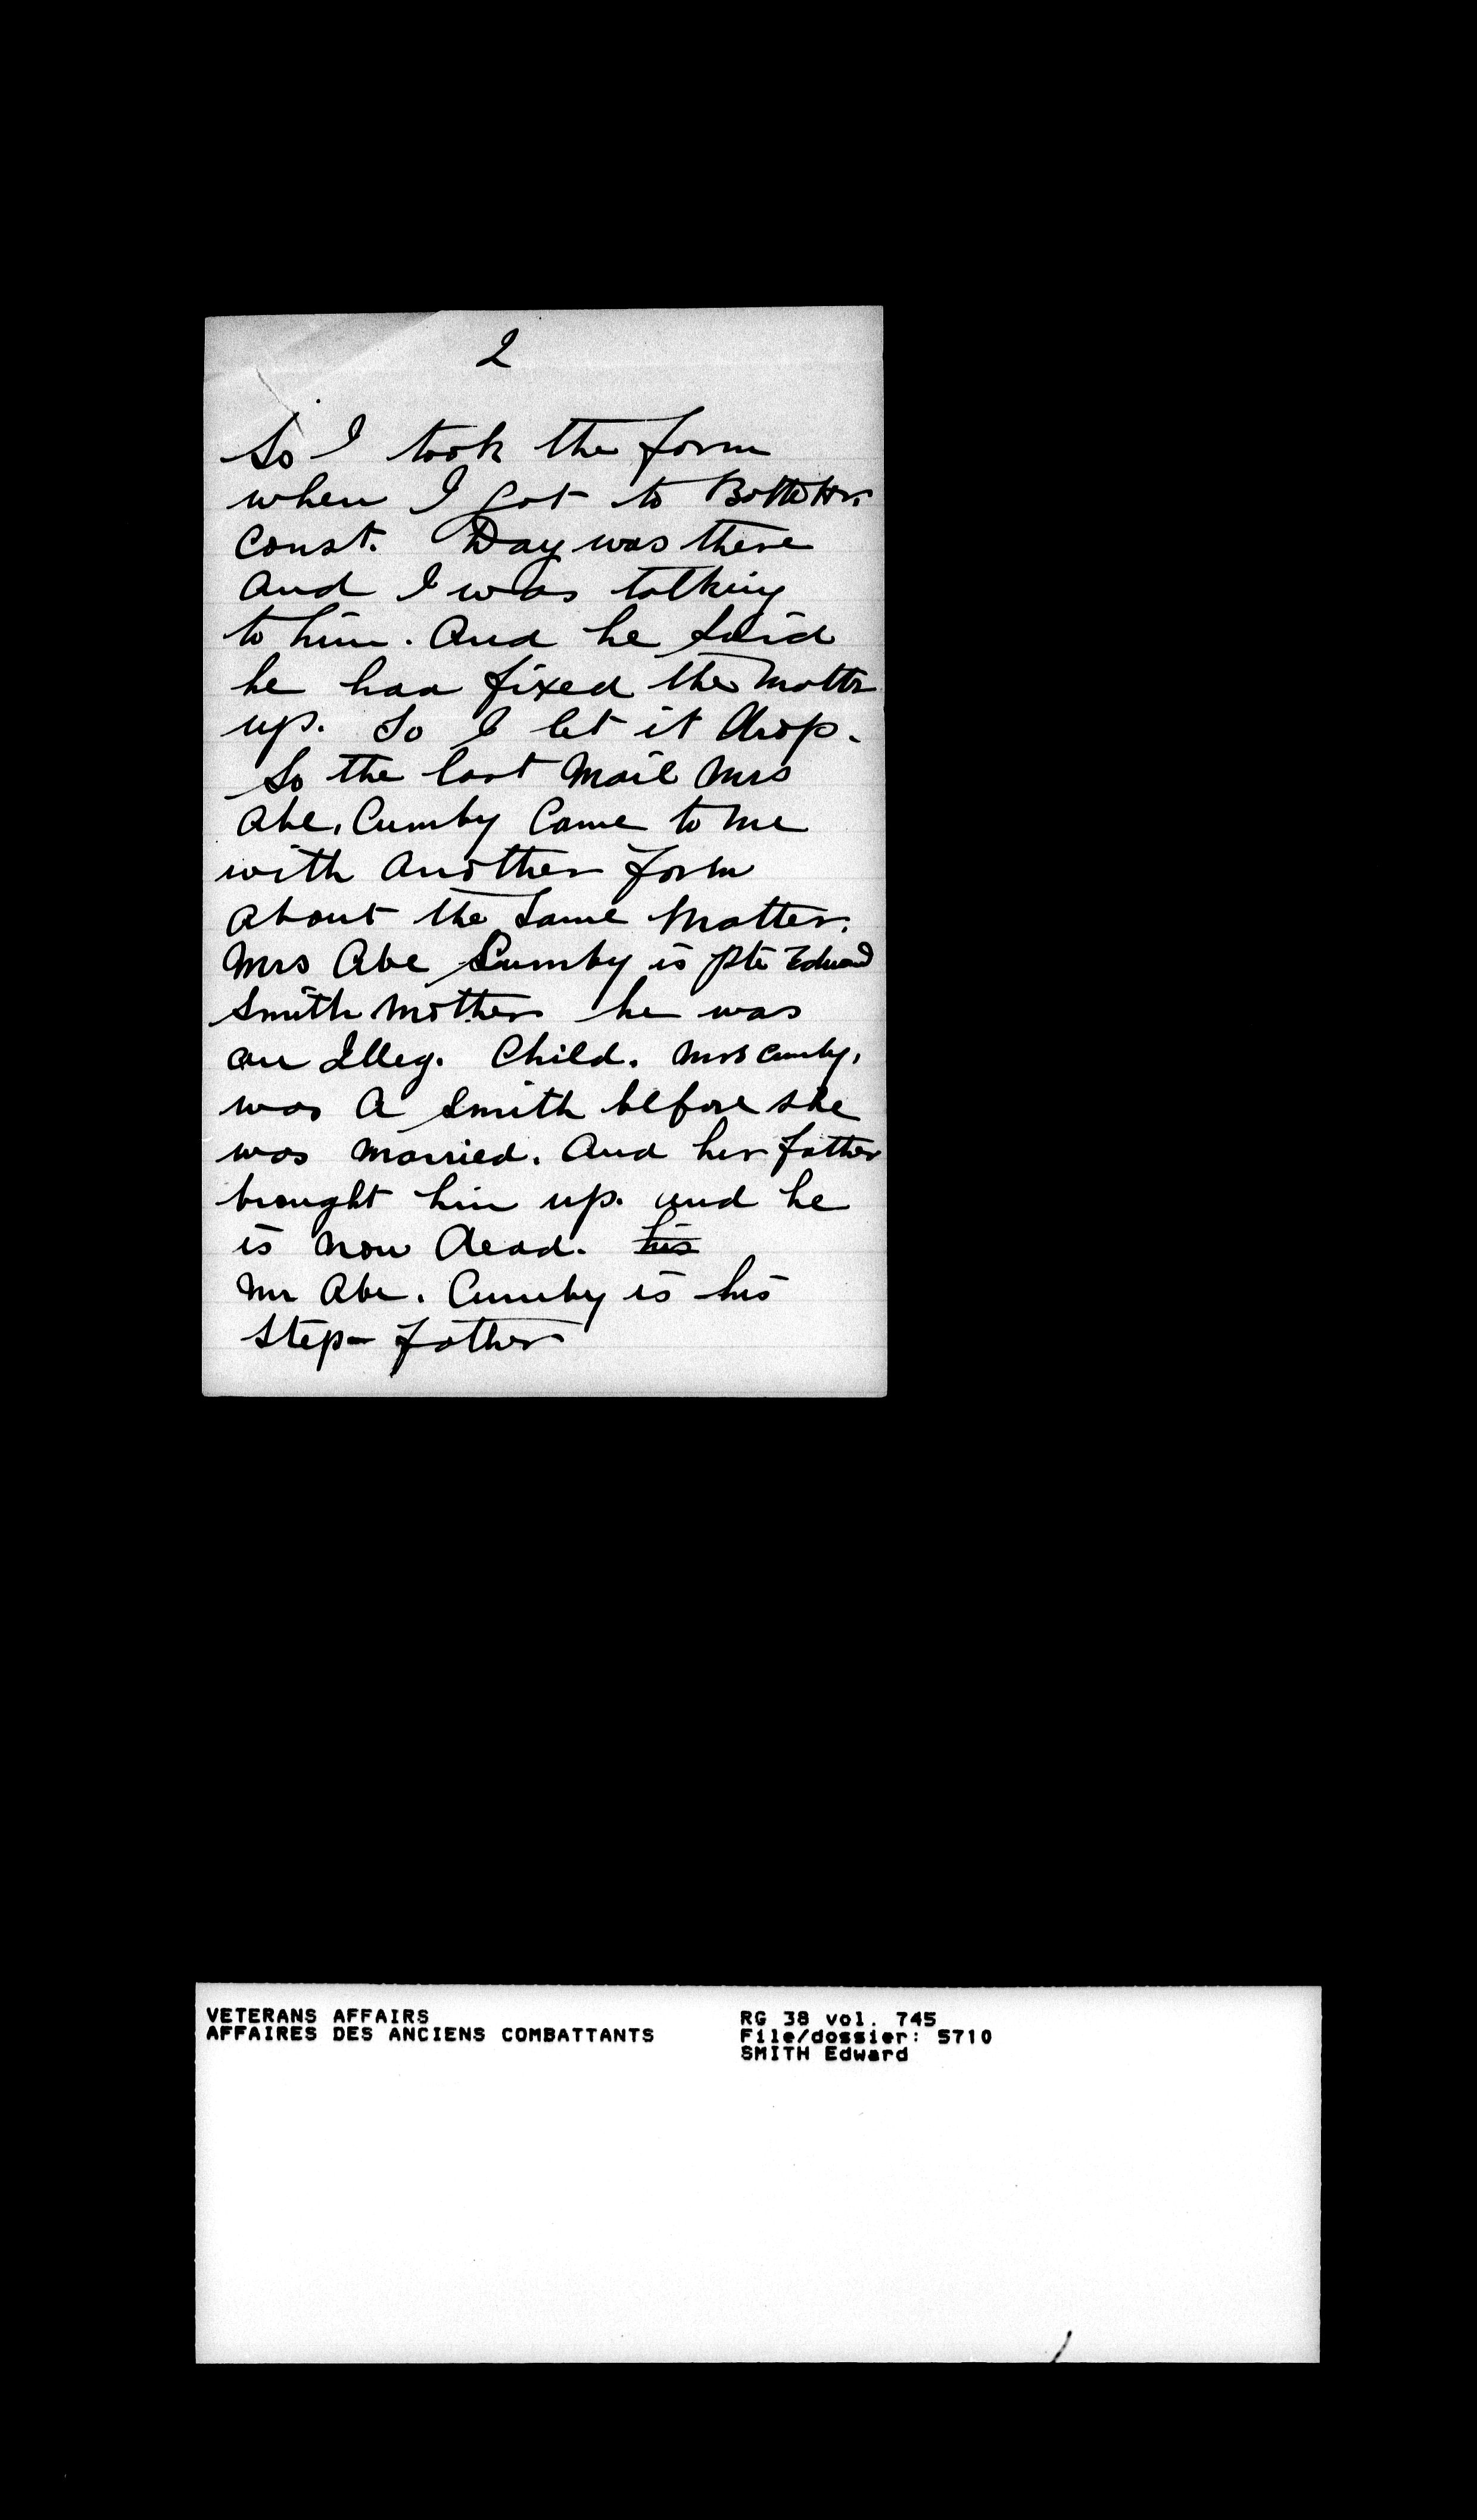 2
So I took the form
when I got to Battle Hr.
Const. Day was there
and I was talking
to him. And he said
he had fixed the matter
up. So I let it drop.
So the last Mail Mrs
Abe. Cumby Came to me
with another form
about the same Matter.
Mrs Abe Cumby is Pte Edward
Smith Mother he was
an Illeg. Child. Mrs Cumby.
was a Smith before she
was married. And her father
brought him up. and he
is now dead. his
Mr Abe. Cumby is his
step-father
VETERANS AFFAIRS
AFFAIRES DES ANCIENS COMBATTANTS
RG 38 vol. 745
File/dossier: 5710
SMITH Edward